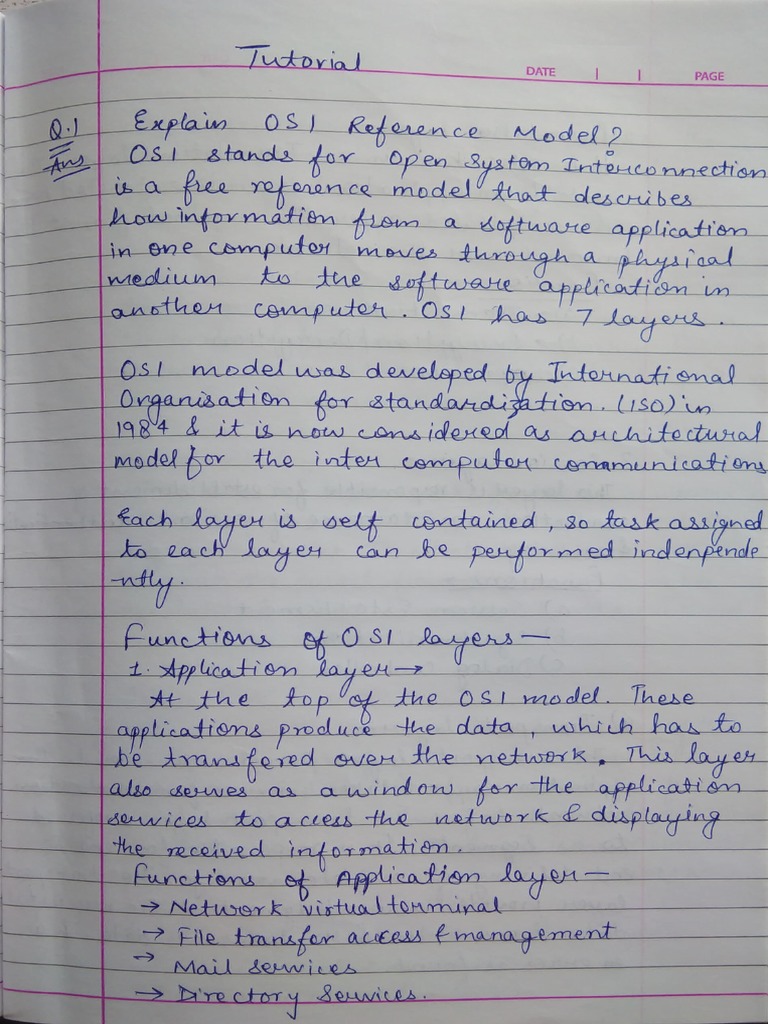 Tutorial
DATE | | PAGE
Q.1 Explain OSI Reference Model?
Ans OSI stands for Open System Interconnection
is a free reference model that describes
how information from a software application
in one computer moves through a physical
medium to the software application in
another computer. OSI has 7 layers.
OSI model was developed by International
Organisation for standardization. (ISO) in
1984 & it is now considered as architectural
model for the inter computer communications
Each layer is self contained, so task assigned
to each layer can be performed indenpende
-ntly.
Functions of OSI layers—
1. Application layer→
At the top of the OSI model. These
applications produce the data, which has to
be transfered over the network. This layer
also serves as a window for the application
services to access the network & displaying
the received information.
Functions of Application layer—
→ Network virtual terminal
→ File transfer access & management
→ Mail services
→ Directory Services.